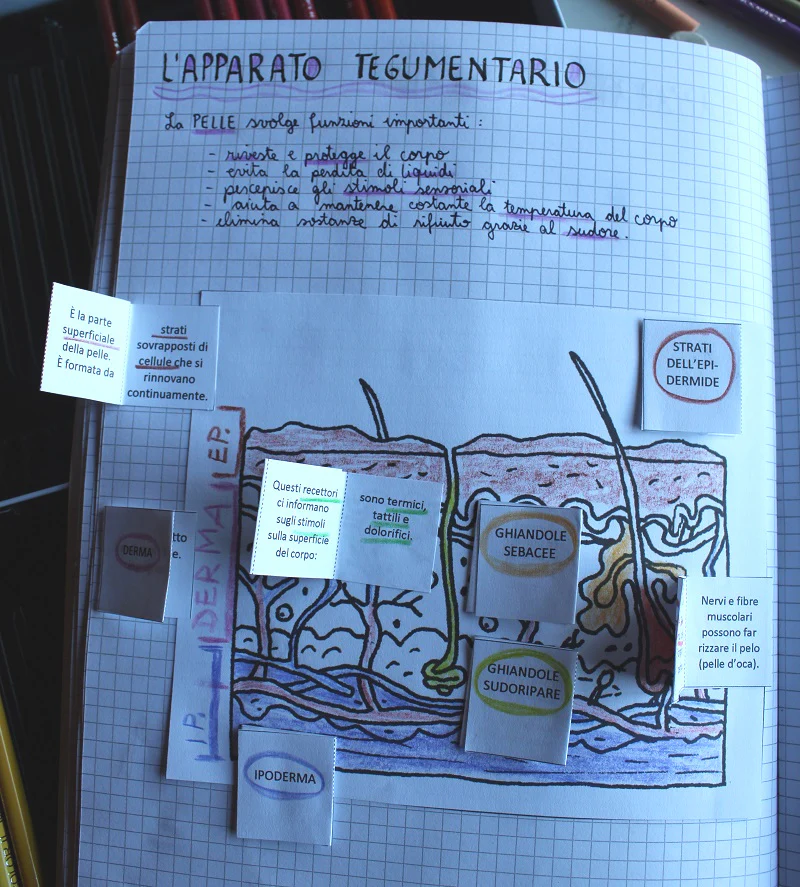 L'APPARATO TEGUMENTARIO
La PELLE svolge funzioni importanti:
- riveste e protegge il corpo
- evita la perdita di liquidi
- percepisce gli stimoli sensoriali
- aiuta a mantenere costante la temperatura del corpo
- elimina sostanze di rifiuto grazie al sudore.
È la parte
superficiale
della pelle.
È formata da
strati
sovrapposti di
cellule che si
rinnovano
continuamente.
STRATI
DELL'EPI-
DERMIDE
EP.
Questi recettori
ci informano
sugli stimoli
sulla superficie
del corpo:
sono termici,
tattili e
dolorifici.
GHIANDOLE
SEBACEE
DERMA
DERMA
Nervi e fibre
muscolari
possono far
rizzare il pelo
(pelle d'oca).
GHIANDOLE
SUDORIPARE
IP.
IPODERMA